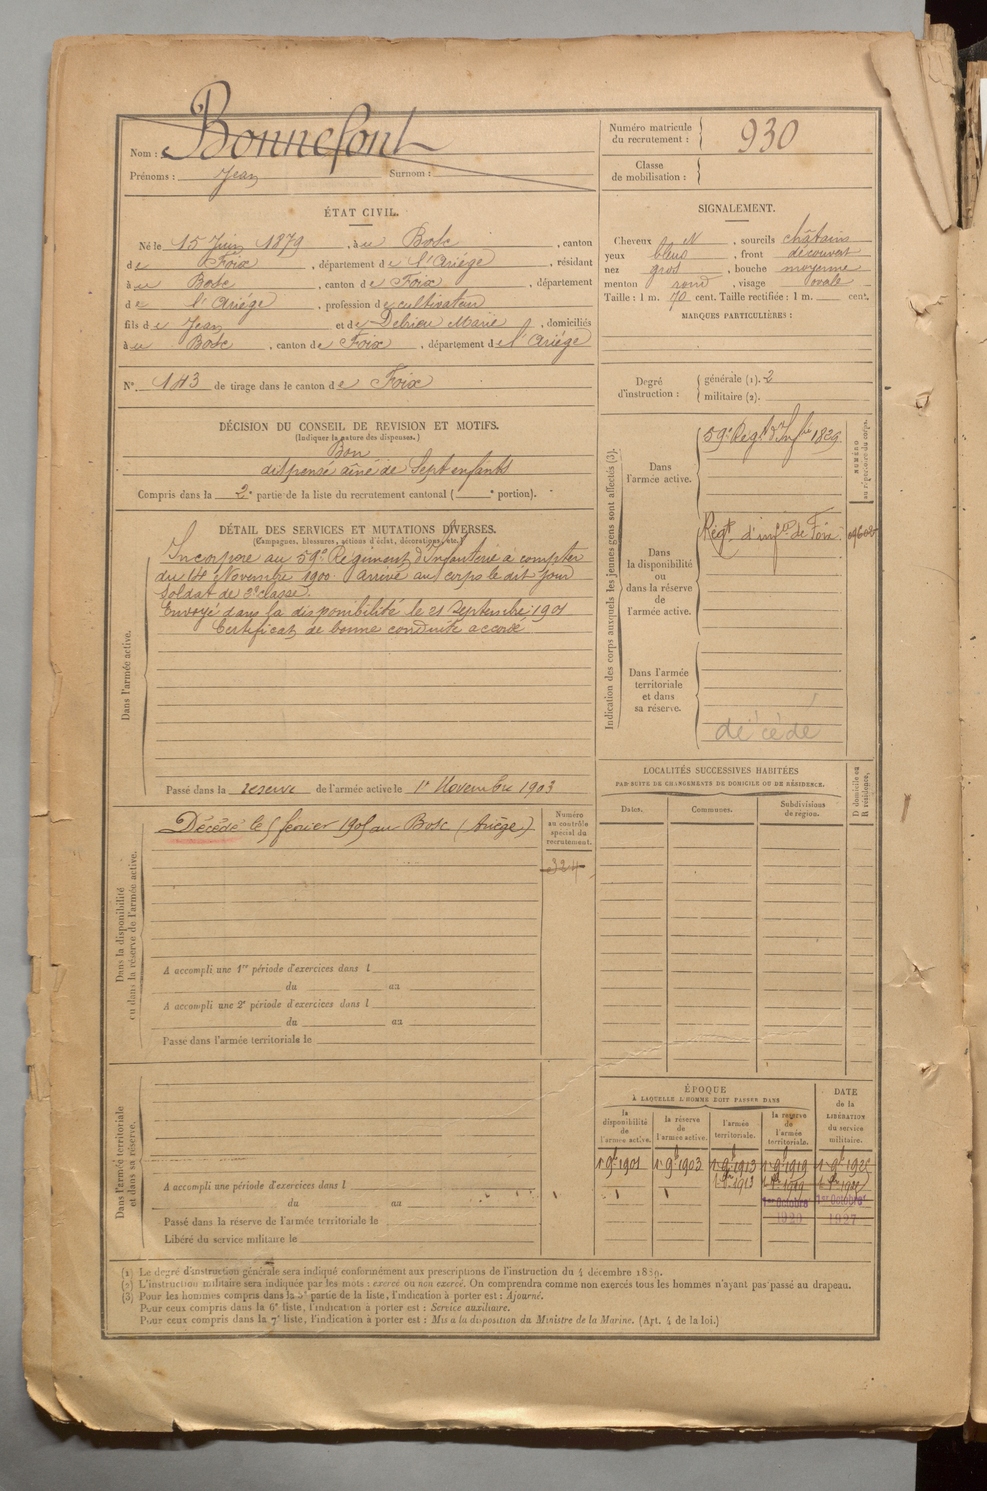 Nom : Bonnefont
Prénoms : Jean Surnom :
Numéro matricule du recrutement : 930
Classe de mobilisation :
ÉTAT CIVIL.
Né le 15 Juin 1879, à u Bosc, canton
de Foix, département de l'Ariége, résidant
à u Bosc, canton de Foix, département
de l'Ariége, profession de cultivateur
fils de Jean et de Debrieu Marie, domiciliés
à u Bosc, canton de Foix, département de l'Ariége
N°. 143 de tirage dans le canton de Foix
SIGNALEMENT.
Cheveux , sourcils châtains
yeux bleus, front découvert
nez gros, bouche moyenne
menton rond, visage ovale
Taille : 1 m. 70 cent. Taille rectifiée : 1 m. cent.
MARQUES PARTICULIÈRES :
Degré d'instruction : générale (1). 2
militaire (2).
DÉCISION DU CONSEIL DE REVISION ET MOTIFS.
(Indiquer la nature des dispenses.)
Bon
dispensé aîné de Sept enfants
Compris dans la 2e partie de la liste du recrutement cantonal ( e portion).
DÉTAIL DES SERVICES ET MUTATIONS DIVERSES.
(Campagnes, blessures, actions d'éclat, décorations, etc.)
Dans l'armée active.
Incorporé au 59e Régiment d'Infanterie à compter
du 14 Novembre 1900 Arrivé au corps le dit jour
Soldat de 2e classe.
Envoyé dans la disponibilité le 21 Septembre 1901
Certificat de bonne conduite accordé
Passé dans la reserve de l'armée active le 1er Novembre 1903
Indication des corps auxquels les jeunes gens sont affectés (3).
NUMÉRO au répertoire du corps.
Dans l'armée active.
59e Regt d'Infie
Dans la disponibilité ou dans la réserve de l'armée active.
Régt d'infie de Foix
Dans l'armée territoriale et dans sa réserve.
décédé
LOCALITÉS SUCCESSIVES HABITÉES
PAR SUITE DE CHANGEMENTS DE DOMICILE OU DE RÉSIDENCE.
Dates. Communes. Subdivisions de région. D domicile ou R résidence.
Dans la disponibilité ou dans la réserve de l'armée active.
Décédé le 5 février 1905 au Bosc (Ariège)
Numéro au contrôle spécial du recrutement.
324
A accompli une 1re période d'exercices dans l
du au
A accompli une 2e période d'exercices dans l
du au
Passé dans l'armée territoriale le
Dans l'armée territoriale et dans sa réserve.
A accompli une période d'exercices dans l
du au
Passé dans la réserve de l'armée territoriale le
Libéré du service militaire le
ÉPOQUE
À LAQUELLE L'HOMME DOIT PASSER DANS
DATE de la LIBÉRATION du service militaire.
la disponibilité de l'armée active. la réserve de l'armée active. l'armée territoriale. la réserve de l'armée territoriale.
1er 9bre 1901 1er 9bre 1903 1er 9bre 1913 1er 9bre 1919
1er Octobre 1er Octobre
1920 1927
(1) Le degré d'instruction générale sera indiqué conformément aux prescriptions de l'instruction du 4 décembre 1889.
(2) L'instruction militaire sera indiquée par les mots : exercé ou non exercé. On comprendra comme non exercés tous les hommes n'ayant pas passé au drapeau.
(3) Pour les hommes compris dans la 5e partie de la liste, l'indication à porter est : Ajourné.
Pour ceux compris dans la 6e liste, l'indication à porter est : Service auxiliaire.
Pour ceux compris dans la 7e liste, l'indication à porter est : Mis à la disposition du Ministre de la Marine. (Art. 4 de la loi.)